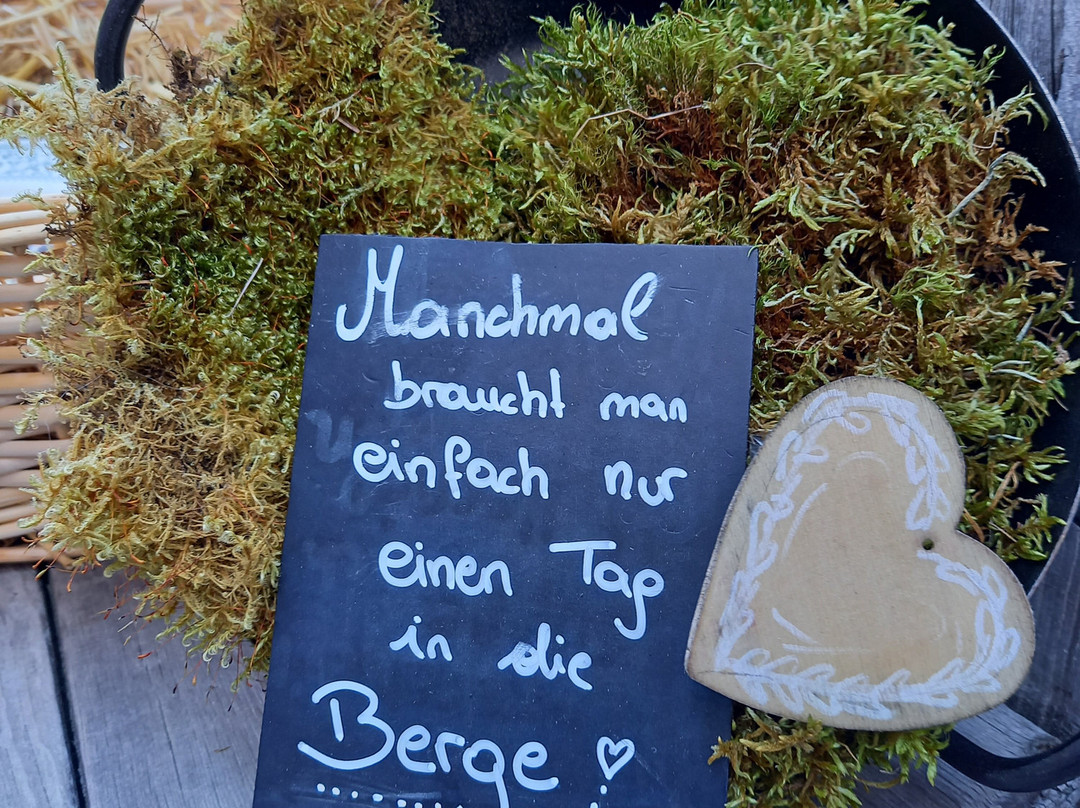 Manchmal
braucht man
einfach nur
einen Tag
in die
Berge